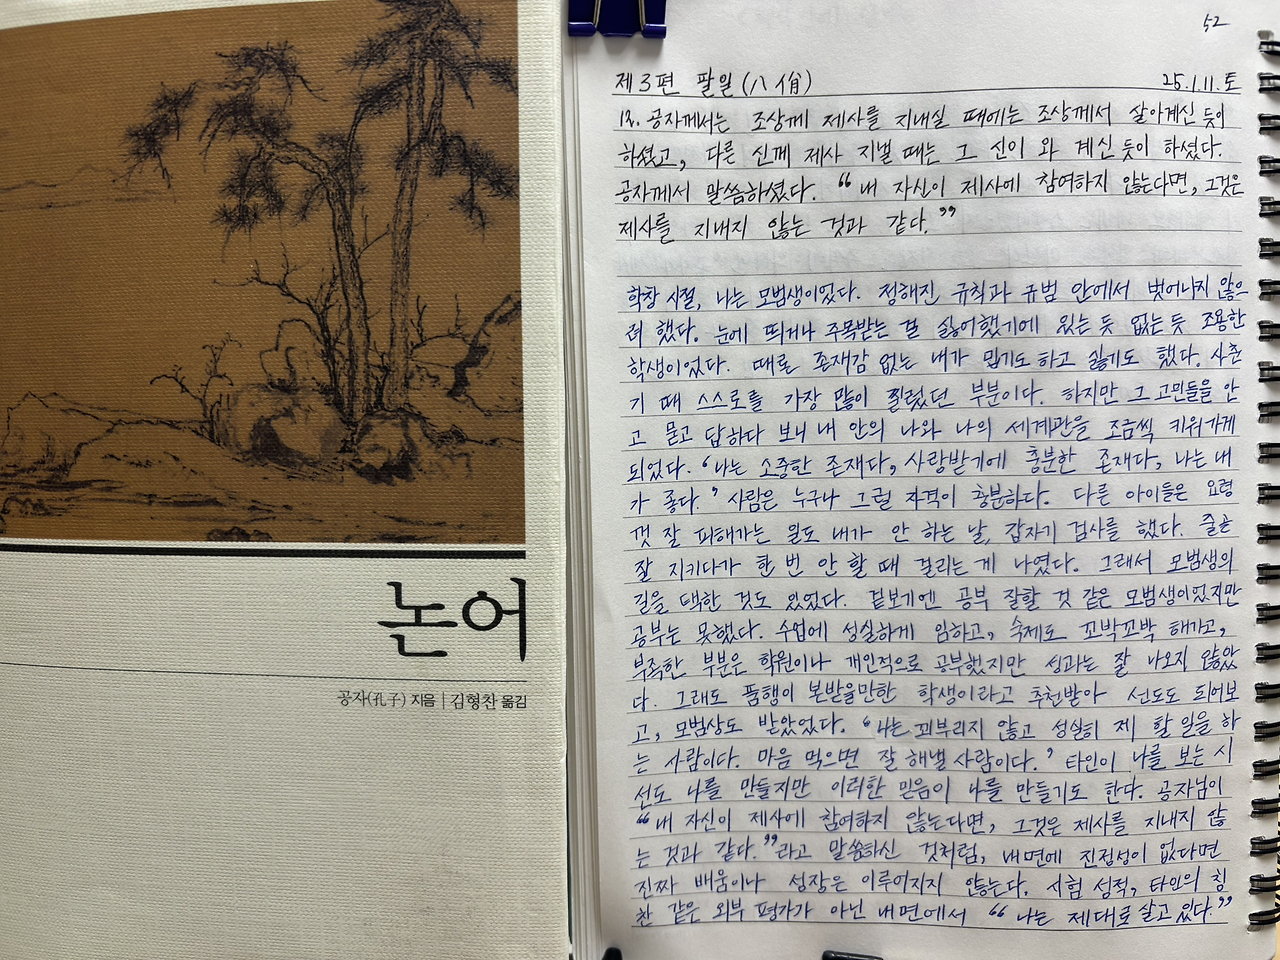 논어
공자(孔子) 지음 | 김형찬 옮김
52
제3편 팔일(八佾) 25.1.11.토
12. 공자께서는 조상께 제사를 지내실 때에는 조상께서 살아계신 듯이
하셨고, 다른 신께 제사 지낼 때는 그 신이 와 계신 듯이 하셨다.
공자께서 말씀하셨다. “내 자신이 제사에 참여하지 않는다면, 그것은
제사를 지내지 않는 것과 같다.”
학창 시절, 나는 모범생이었다. 정해진 규칙과 규범 안에서 벗어나지 않으
려 했다. 눈에 띄거나 주목받는 걸 싫어했기에 있는 듯 없는 듯 조용한
학생이었다. 때로 존재감 없는 내가 밉기도 하고 싫기도 했다. 사춘
기 때 스스로를 가장 많이 찔렀던 부분이다. 하지만 그 고민들을 안
고 묻고 답하다 보니 내 안의 나와 나의 세계관을 조금씩 키워가게
되었다. ‘나는 소중한 존재다, 사랑받기에 충분한 존재다, 나는 내
가 좋다.’ 사람은 누구나 그럴 자격이 충분하다. 다른 아이들은 요령
껏 잘 피해가는 일도 내가 안 하는 날, 갑자기 검사를 했다. 줄곧
잘 지키다가 한 번 안 할 때 걸리는 게 나였다. 그래서 모범생의
길을 택한 것도 있었다. 겉보기엔 공부 잘할 것 같은 모범생이었지만
공부는 못했다. 수업에 성실하게 임하고, 숙제도 꼬박꼬박 해가고,
부족한 부분은 학원이나 개인적으로 공부했지만 성과는 잘 나오지 않았
다. 그래도 품행이 본받을만한 학생이라고 추천받아 선도도 되어보
고, 모범상도 받았었다. ‘나는 꾀부리지 않고 성실히 제 할 일을 하
는 사람이다. 마음 먹으면 잘 해낼 사람이다.’ 타인이 나를 보는 시
선도 나를 만들지만 이러한 믿음이 나를 만들기도 한다. 공자님이
“내 자신이 제사에 참여하지 않는다면, 그것은 제사를 지내지 않
는 것과 같다.”라고 말씀하신 것처럼, 내면에 진정성이 없다면
진짜 배움이나 성장은 이루어지지 않는다. 시험 성적, 타인의 칭
찬 같은 외부 평가가 아닌 내면에서 “나는 제대로 살고 있다.”